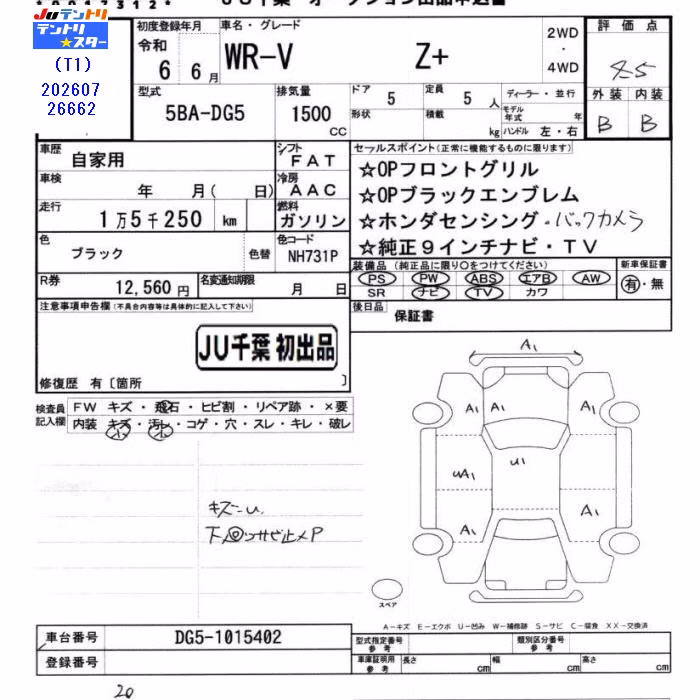 *0047312*
JU千葉 オークション出品申込書
JUテントリ
テントリ★スター
(T1)
202607
26662
初度登録年月
令和
6 6月
車名・グレード
WR-V Z+
2WD
・
4WD
評価点
4.5
外装 内装
B B
型式
5BA-DG5
排気量
1500
CC
ドア
5
定員
5 人
形状
積載
kg
ディーラー・並行
モデル年式 年
ハンドル 左・右
車歴
自家用
シフト
FAT
車検
年 月( 日)
冷房
AAC
走行
1万5千250 km
燃料
ガソリン
色
ブラック
色替
色コード
NH731P
R券
12,560円
名変通知期限
月 日
セールスポイント(正常に機能するものに限ります)
☆OPフロントグリル
☆OPブラックエンブレム
☆ホンダセンシング・バックカメラ
☆純正9インチナビ・TV
装備品(純正品に限り○をつけてください)
PS PW ABS エアB AW
SR ナビ TV カワ
新車保証書
有・無
後日品
保証書
注意事項申告欄(不具合内容等は具体的に記入して下さい)
JU千葉 初出品
修復歴 有〔箇所 〕
検査員
記入欄
FW キズ・飛石・ヒビ割・リペア跡・×要
内装 キズ・汚レ・コゲ・穴・スレ・キレ・破レ
小 小
キズ~u.
下回サビ止メP
A1
A1 A1 A1
uA1 u1
A1 A1
スペア
A-キズ E-エクボ U-凹み W-補修跡 S-サビ C-腐食 XX-交換済
車台番号
DG5-1015402
登録番号
型式指定番号
参考
類別区分番号
参考
車庫証明用
参考
長さ cm
幅 cm
高さ cm
20